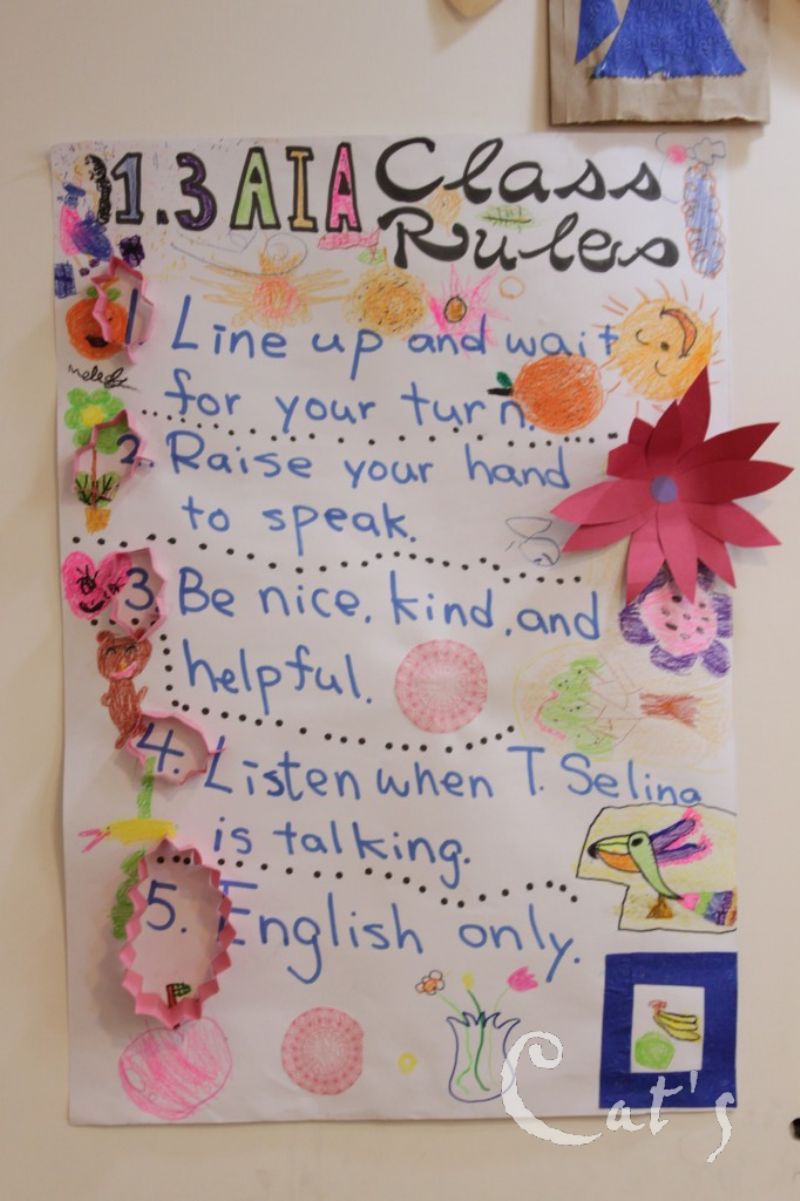 1.3 AIA Class
Rules
1. Line up and wait
for your turn.
2. Raise your hand
to speak.
3. Be nice, kind, and
helpful.
4. Listen when T. Selina
is talking.
5. English only.
Cat's